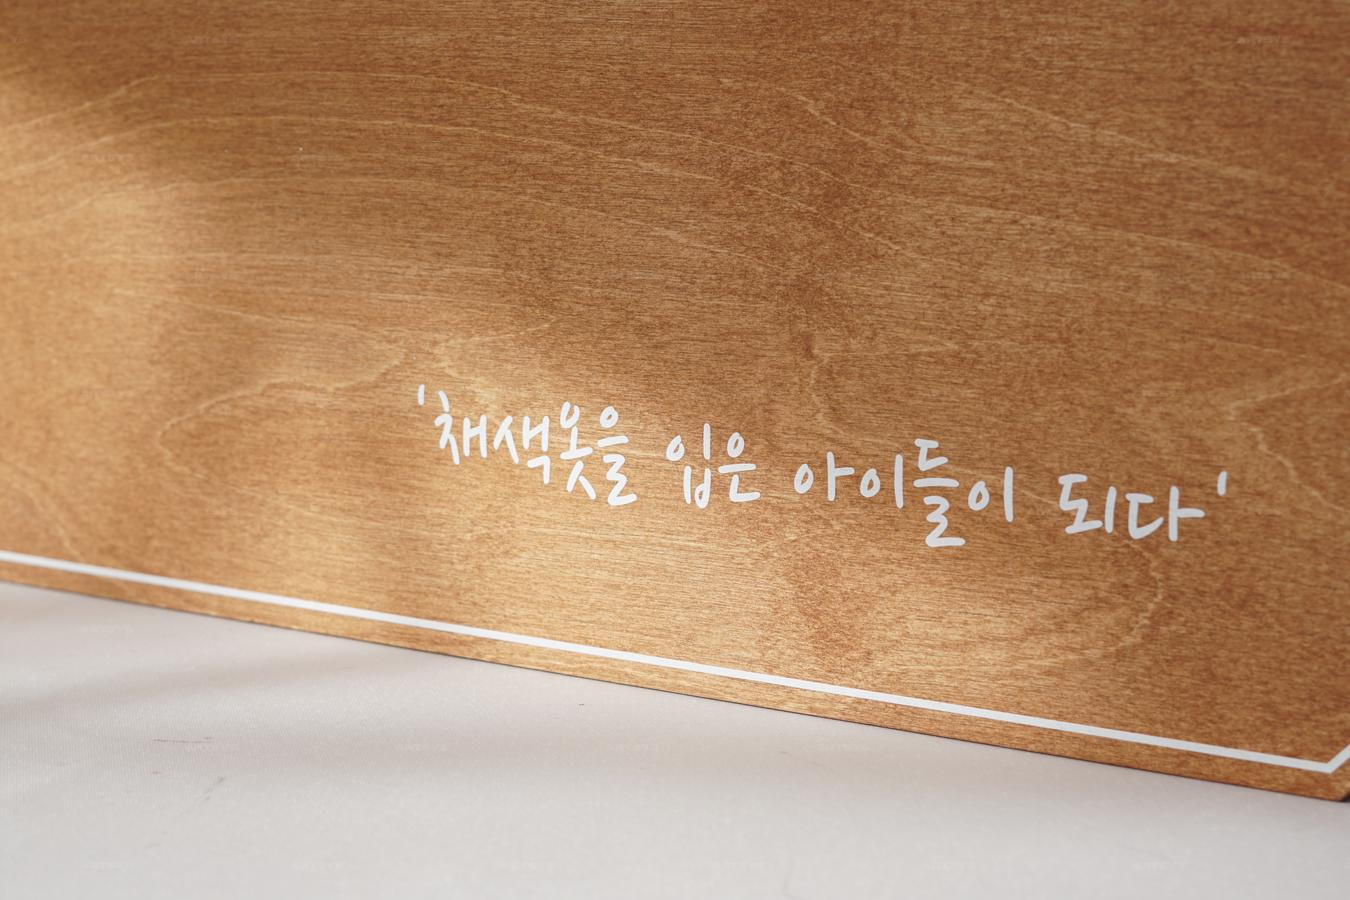 '채색옷을 입은 아이들이 되다'